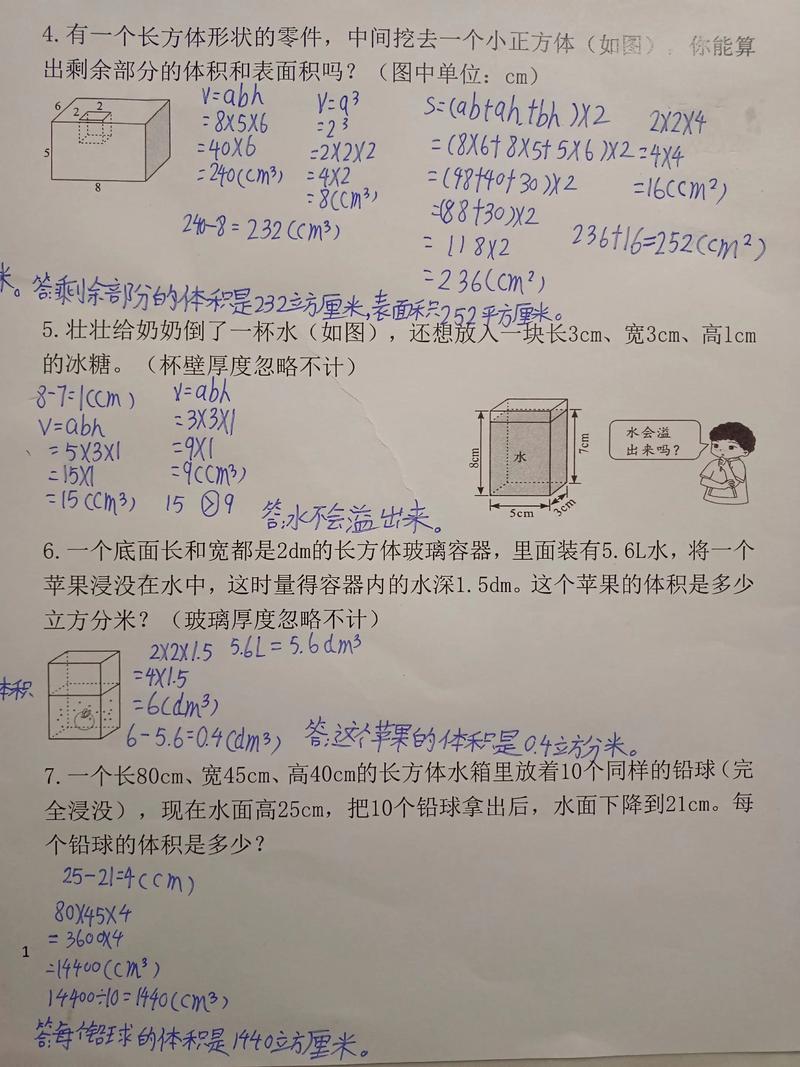 4.有一个长方体形状的零件，中间挖去一个小正方体（如图），你能算
出剩余部分的体积和表面积吗？（图中单位：cm）
6 2 2 5 8
V=abh
=8×5×6
=40×6
=240(cm³)
V=a³
=2³
=2×2×2
=4×2
=8(cm³)
240-8=232(cm³)
S=(ab+ah+bh)×2
=(8×6+8×5+5×6)×2
=(48+40+30)×2
=(88+30)×2
=118×2
=236(cm²)
2×2×4
=4×4
=16(cm²)
236+16=252(cm²)
米。答:剩余部分的体积是232立方厘米,表面积252平方厘米。
5.壮壮给奶奶倒了一杯水（如图），还想放入一块长3cm、宽3cm、高1cm
的冰糖。（杯壁厚度忽略不计）
8-7=1(cm)
V=abh
=5×3×1
=15×1
=15(cm³)
V=abh
=3×3×1
=9×1
=9(cm³)
15 > 9
答:水不会溢出来。
8cm
水
7cm
5cm
3cm
水会溢
出来吗？
6.一个底面长和宽都是2dm的长方体玻璃容器，里面装有5.6L水，将一个
苹果浸没在水中，这时量得容器内的水深1.5dm。这个苹果的体积是多少
立方分米？（玻璃厚度忽略不计）
体积
2×2×1.5
=4×1.5
=6(dm³)
5.6L=5.6dm³
6-5.6=0.4(dm³)
答:这个苹果的体积是0.4立方分米。
7.一个长80cm、宽45cm、高40cm的长方体水箱里放着10个同样的铅球（完
全浸没），现在水面高25cm，把10个铅球拿出后，水面下降到21cm。每
个铅球的体积是多少？
25-21=4(cm)
80×45×4
=3600×4
=14400(cm³)
14400÷10=1440(cm³)
答:每个铅球的体积是1440立方厘米。
1